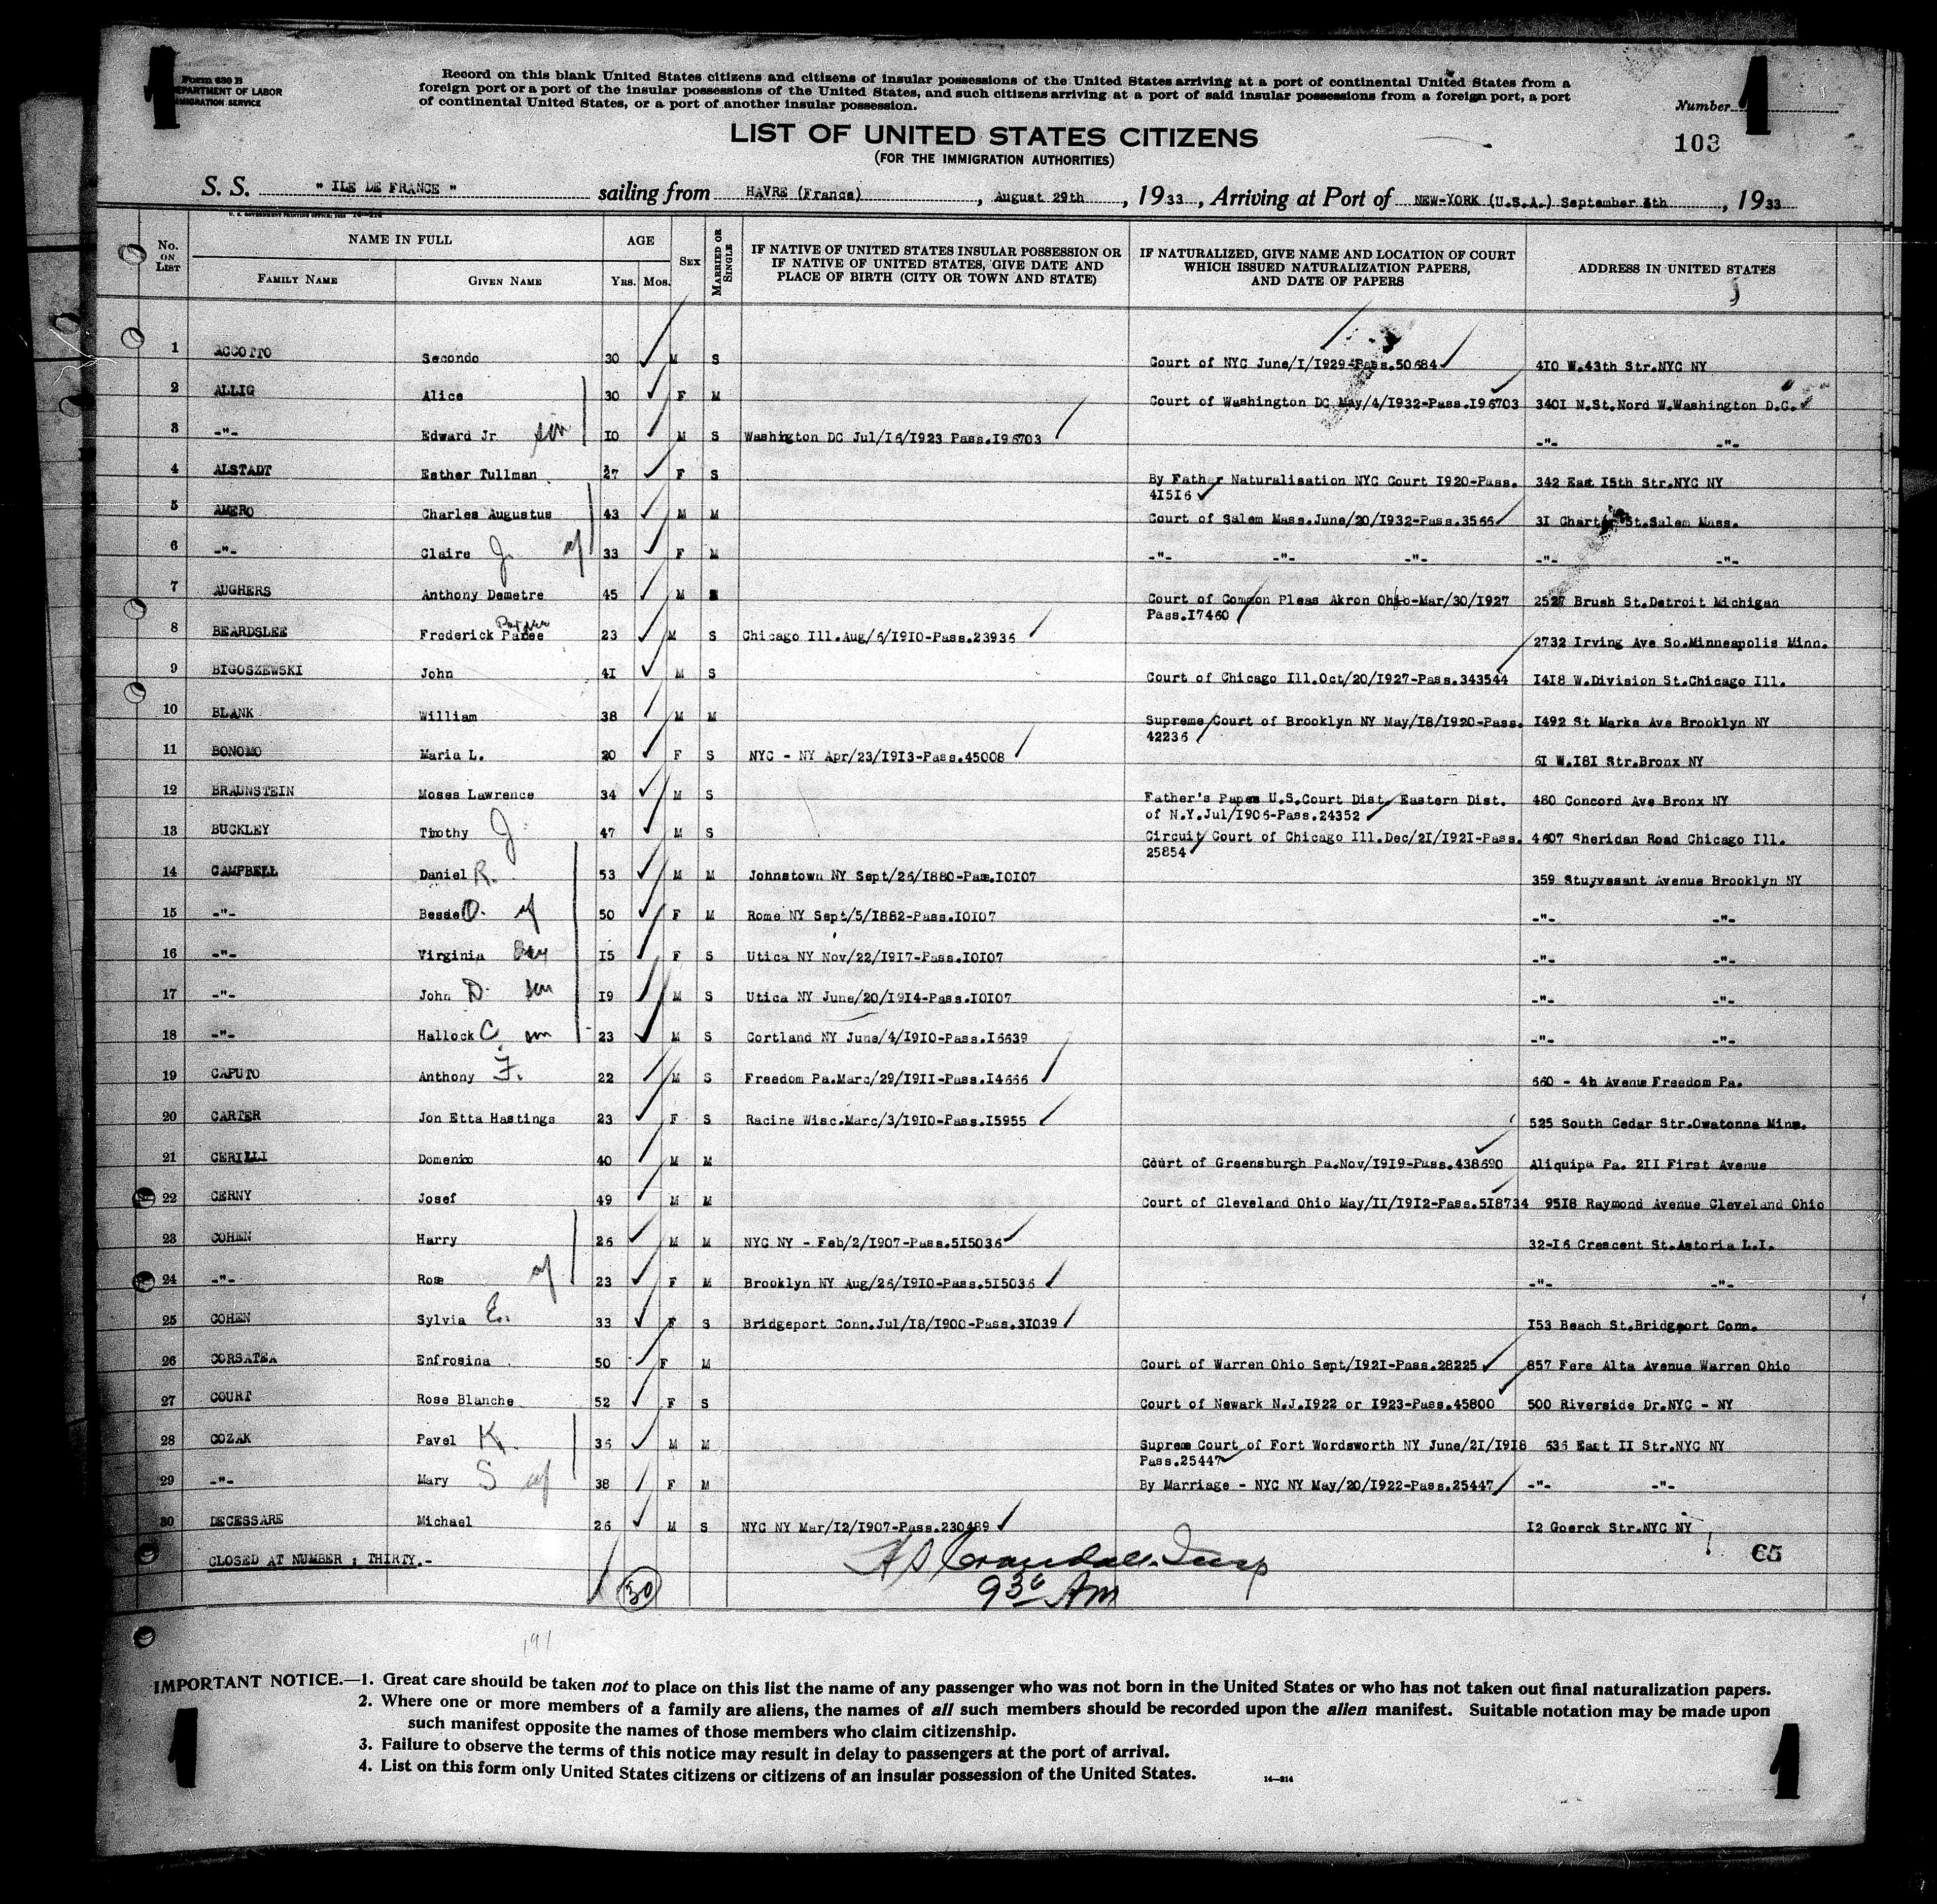 1
1
Form 630 B
DEPARTMENT OF LABOR
IMMIGRATION SERVICE
Record on this blank United States citizens and citizens of insular possessions of the United States arriving at a port of continental United States from a
foreign port or a port of the insular possessions of the United States, and such citizens arriving at a port of said insular possessions from a foreign port, a port
of continental United States, or a port of another insular possession.
Number
103
LIST OF UNITED STATES CITIZENS
(FOR THE IMMIGRATION AUTHORITIES)
S. S. " ILE DE FRANCE " sailing from HAVRE (France), August 29th, 1933, Arriving at Port of NEW-YORK (U.S.A.) September th, 1933
No. ON LIST
NAME IN FULL
FAMILY NAME
GIVEN NAME
AGE
YRS. MOS.
SEX
MARRIED OR SINGLE
IF NATIVE OF UNITED STATES INSULAR POSSESSION OR
IF NATIVE OF UNITED STATES, GIVE DATE AND
PLACE OF BIRTH (CITY OR TOWN AND STATE)
IF NATURALIZED, GIVE NAME AND LOCATION OF COURT
WHICH ISSUED NATURALIZATION PAPERS,
AND DATE OF PAPERS
ADDRESS IN UNITED STATES
1 ACCOTTO Secondo 30 M S Court of NYC June/I/I929-Pass.50684 4I0 W.43th Str.NYC NY
2 ALLIG Alice 30 F M Court of Washington DC May/4/I932-Pass.I96703 340I N.St.Nord W.Washington D.C.
3 -"- Edward Jr son I0 M S Washington DC Jul/I6/I923 Pass.I96703 -"- -"-
4 ALSTADT Esther Tullman 27 F S By Father Naturalisation NYC Court I920-Pass. 342 East I5th Str.NYC NY
4I5I6
5 AMERO Charles Augustus 43 M M Court of Salem Mass.June/20/I932-Pass.3566 3I Charter St.Salem Mass.
6 -"- Claire J. wf 33 F M -"- -"- -"- -"- -"-
7 AUGHERS Anthony Demetre 45 M Court of Common Pleas Akron Ohio-Mar/30/I927 2527 Brush St.Detroit Michigan
Pass.I7460
8 BEARDSLEE Frederick 23 M S Chicago Ill.Aug/6/I9I0-Pass.23936 2732 Irving Ave So.Minneapolis Minn.
9 BIGOSZEWSKI John 4I M S Court of Chicago Ill.Oct/20/I927-Pass.343544 I4I8 W.Division St.Chicago Ill.
10 BLANK William 38 M M Supreme Court of Brooklyn NY May/I8/I920-Pass. I492 St Marks Ave Brooklyn NY
42236
11 BONOMO Maria L. 20 F S NYC - NY Apr/23/I9I3-Pass.45008 6I W.I8I Str.Bronx NY
12 BRAUNSTEIN Moses Lawrence 34 M S Father's Papes U.S.Court Dist. Eastern Dist. 480 Concord Ave Bronx NY
of N.Y.Jul/I906-Pass.24352
13 BUCKLEY Timothy J 47 M S Circuit Court of Chicago Ill.Dec/2I/I92I-Pass. 4607 Sheridan Road Chicago Ill.
25854
14 CAMPBELL Daniel R. 53 M M Johnstown NY Sept/26/I880-Pass.I0I07 359 Stuyvesant Avenue Brooklyn NY
15 -"- Bessie O. wf 50 F M Rome NY Sept/5/I882-Pass.I0I07 -"- -"-
16 -"- Virginia I5 F S Utica NY Nov/22/I9I7-Pass.I0I07 -"- -"-
17 -"- John D. son I9 M S Utica NY June/20/I9I4-Pass.I0I07 -"- -"-
18 -"- Hallock C. son 23 M S Cortland NY June/4/I9I0-Pass.I6639 -"- -"-
19 CAPUTO Anthony F. 22 M S Freedom Pa.Marc/29/I9II-Pass.I4666 660 - 4h Avenue Freedom Pa.
20 CARTER Jon Etta Hastings 23 F S Racine Wisc.Marc/3/I9I0-Pass.I5955 525 South Cedar Str.Owatonna Minn.
21 CERILLI Domenico 40 M M Court of Greensburgh Pa.Nov/I9I9-Pass.438690 Aliquipa Pa. 2II First Avenue
22 CERNY Josef 49 M M Court of Cleveland Ohio May/II/I9I2-Pass.5I8734 95I8 Raymond Avenue Cleveland Ohio
23 COHEN Harry 26 M M NYC NY - Feb/2/I907-Pass.5I5036 32-I6 Crescent St.Astoria L.I.
24 -"- Rose wf 23 F M Brooklyn NY Aug/26/I9I0-Pass.5I5036 -"- -"-
25 COHEN Sylvia E. 33 F S Bridgeport Conn.Jul/I8/I900-Pass.3I039 I53 Beach St.Bridgeport Conn.
26 CORSATEA Enfrosina 50 F M Court of Warren Ohio Sept/I92I-Pass.28225 857 Fere Alta Avenue Warren Ohio
27 COURT Rose Blanche 52 F S Court of Newark N.J.I922 or I923-Pass.45800 500 Riverside Dr.NYC - NY
28 COZAK Pavel K. 36 M M Supreme Court of Fort Wordsworth NY June/2I/I9I8 636 East II Str.NYC NY
Pass.25447
29 -"- Mary S wf 38 F M By Marriage - NYC NY May/20/I922-Pass.25447 -"- -"-
30 DECESSARE Michael 26 M S NYC NY Mar/I2/I907-Pass.230489 I2 Goerck Str.NYC NY
CLOSED AT NUMBER ; THIRTY.-
65
30
930 AM
191
IMPORTANT NOTICE.—1. Great care should be taken not to place on this list the name of any passenger who was not born in the United States or who has not taken out final naturalization papers.
2. Where one or more members of a family are aliens, the names of all such members should be recorded upon the alien manifest. Suitable notation may be made upon
such manifest opposite the names of those members who claim citizenship.
3. Failure to observe the terms of this notice may result in delay to passengers at the port of arrival.
4. List on this form only United States citizens or citizens of an insular possession of the United States.
14—214
1
1